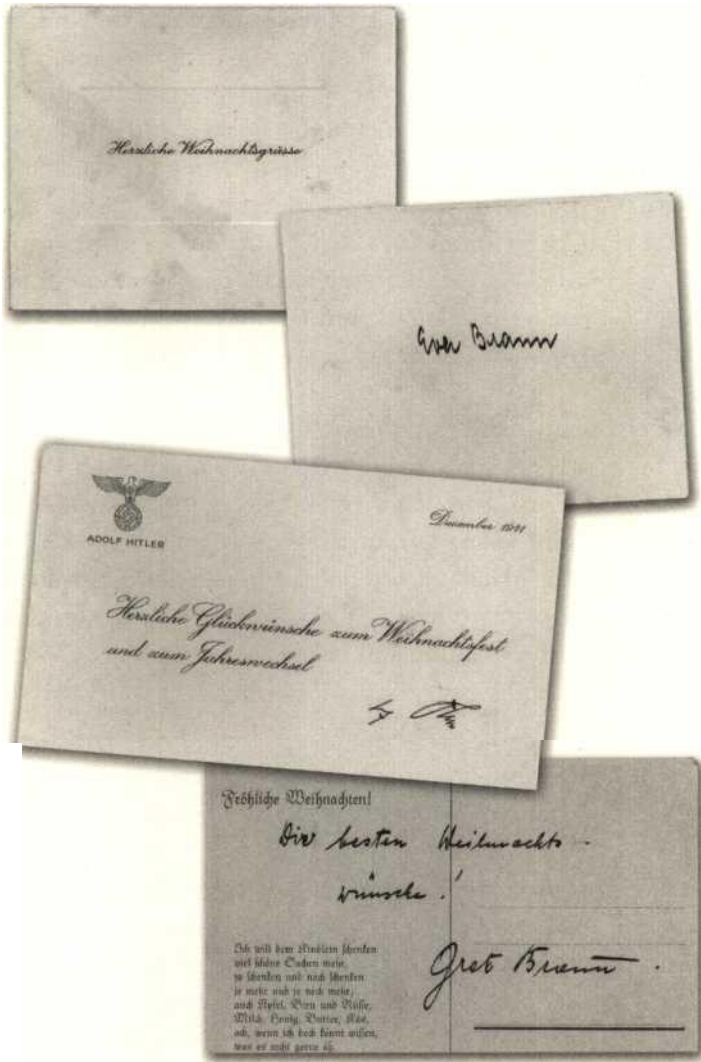 Herzliche Weihnachtsgrüsse
Eva Braun
ADOLF HITLER
Dezember 1941
Herzliche Glückwünsche zum Weihnachtsfest
und zum Jahreswechsel
Fröhliche Weihnachten!
Die besten Weihnachts-
wünsche!
Gret Braun.
Ich will dem Kindlein schenken
viel schöne Sachen mehr,
zu schenken und noch schenken
je mehr und je noch mehr,
auch Äpfel, Birn und Nüsse,
Milch, Honig, Butter, Käs,
ach, wenn ich doch könnt wissen,
was es recht gerne äß.